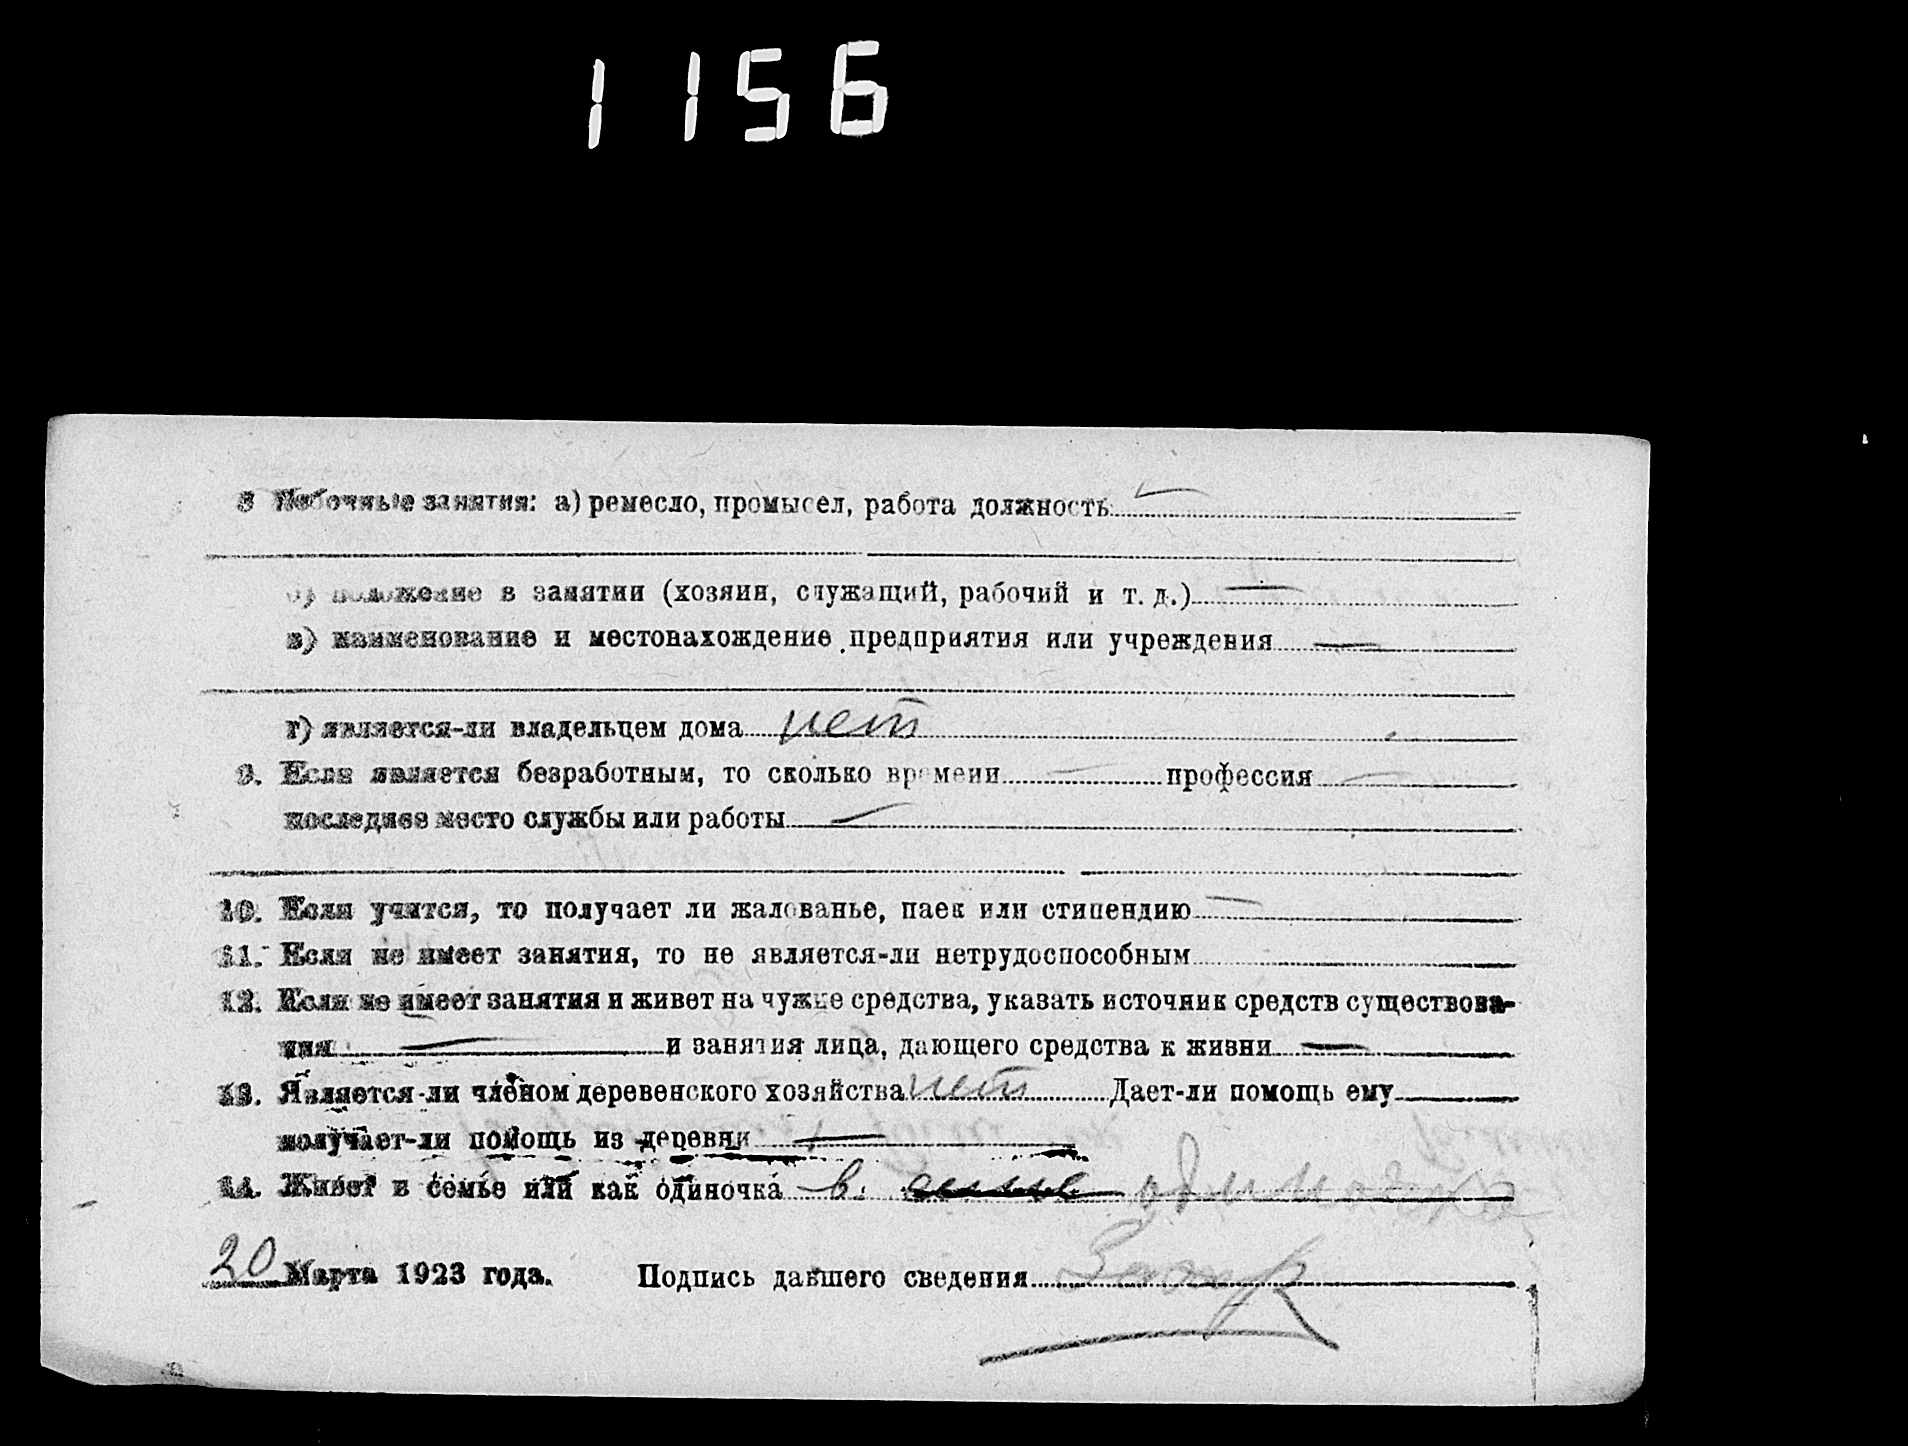 1156
8 Побочные занятия: а) ремесло, промысел, работа должность
б) положение в занятии (хозяин, служащий, рабочий и т. д.)
в) наименование и местонахождение предприятия или учреждения
г) является-ли владельцем дома нет
9. Если является безработным, то сколько времени профессия
последнее место службы или работы
10. Если учится, то получает ли жалованье, паек или стипендию
11. Если не имеет занятия, то не является-ли нетрудоспособным
12. Если не имеет занятия и живет на чужие средства, указать источник средств существова-
ния и занятия лица, дающего средства к жизни
13. Является-ли членом деревенского хозяйства нет Дает-ли помощь ему
получает-ли помощь из деревни
14. Живет в семье или как одиночка в семье одиночка
20 Марта 1923 года. Подпись давшего сведения